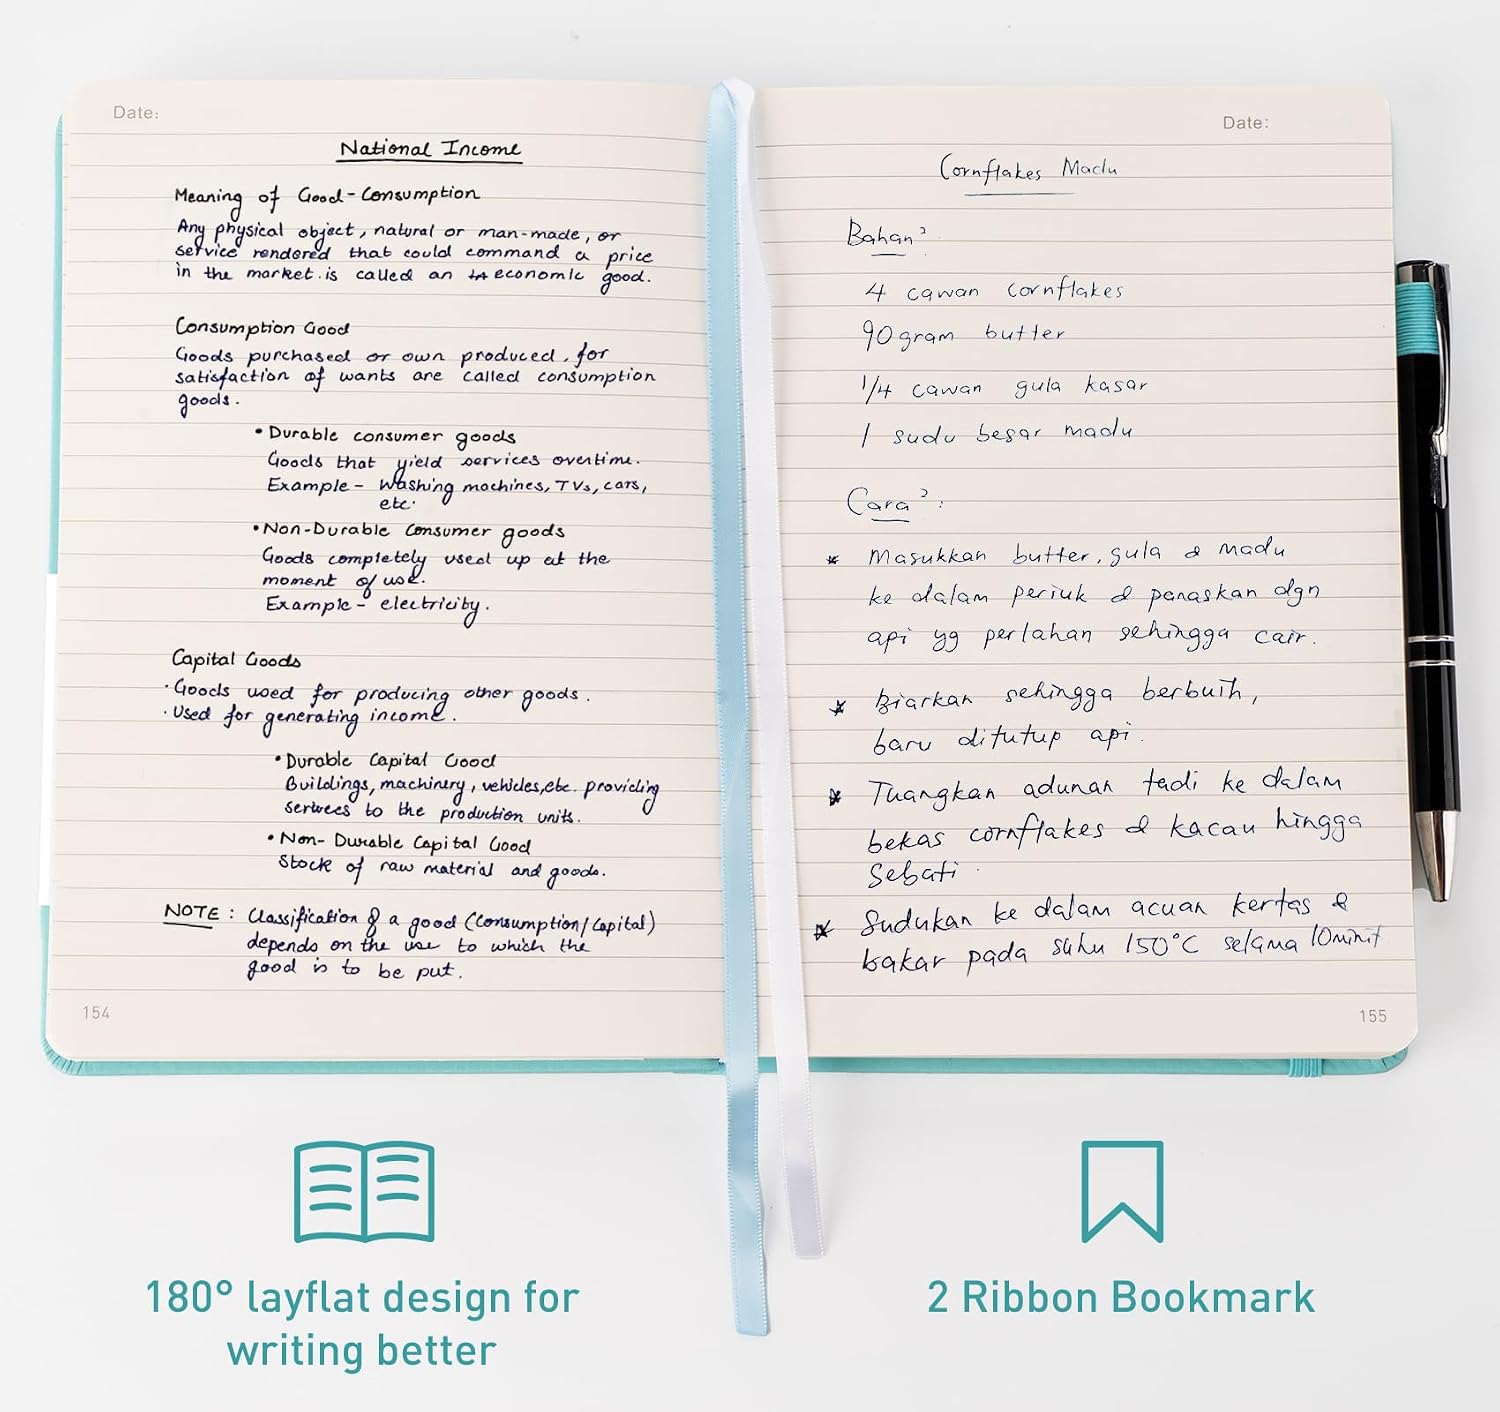 Date:
National Income
Meaning of Good-Consumption
Any physical object, natural or man-made, or
service rendered that could command a price
in the market is called an economic good.
Consumption Good
Goods purchased or own produced, for
satisfaction of wants are called consumption
goods.
• Durable consumer goods
Goods that yield services overtime.
Example - Washing machines, TVs, cars,
etc.
• Non-Durable Consumer goods
Goods completely used up at the
moment of use.
Example - electricity.
Capital Goods
· Goods used for producing other goods.
· Used for generating income.
• Durable Capital Good
Buildings, machinery, vehicles, etc. providing
services to the production units.
• Non-Durable Capital Good
Stock of raw material and goods.
NOTE : Classification of a good (Consumption/Capital)
depends on the use to which the
good is to be put.
154
Date:
Cornflakes Madu
Bahan² :
4 cawan cornflakes
90 gram butter
1/4 cawan gula kasar
1 sudu besar madu
Cara² :
* Masukkan butter, gula & madu
ke dalam periuk & panaskan dgn
api yg perlahan sehingga cair.
* Biarkan sehingga berbuih,
baru ditutup api.
* Tuangkan adunan tadi ke dalam
bekas cornflakes & kacau hingga
sebati.
* Sudukan ke dalam acuan kertas &
bakar pada suhu 150°C selama 10minit
155
180° layflat design for
writing better
2 Ribbon Bookmark